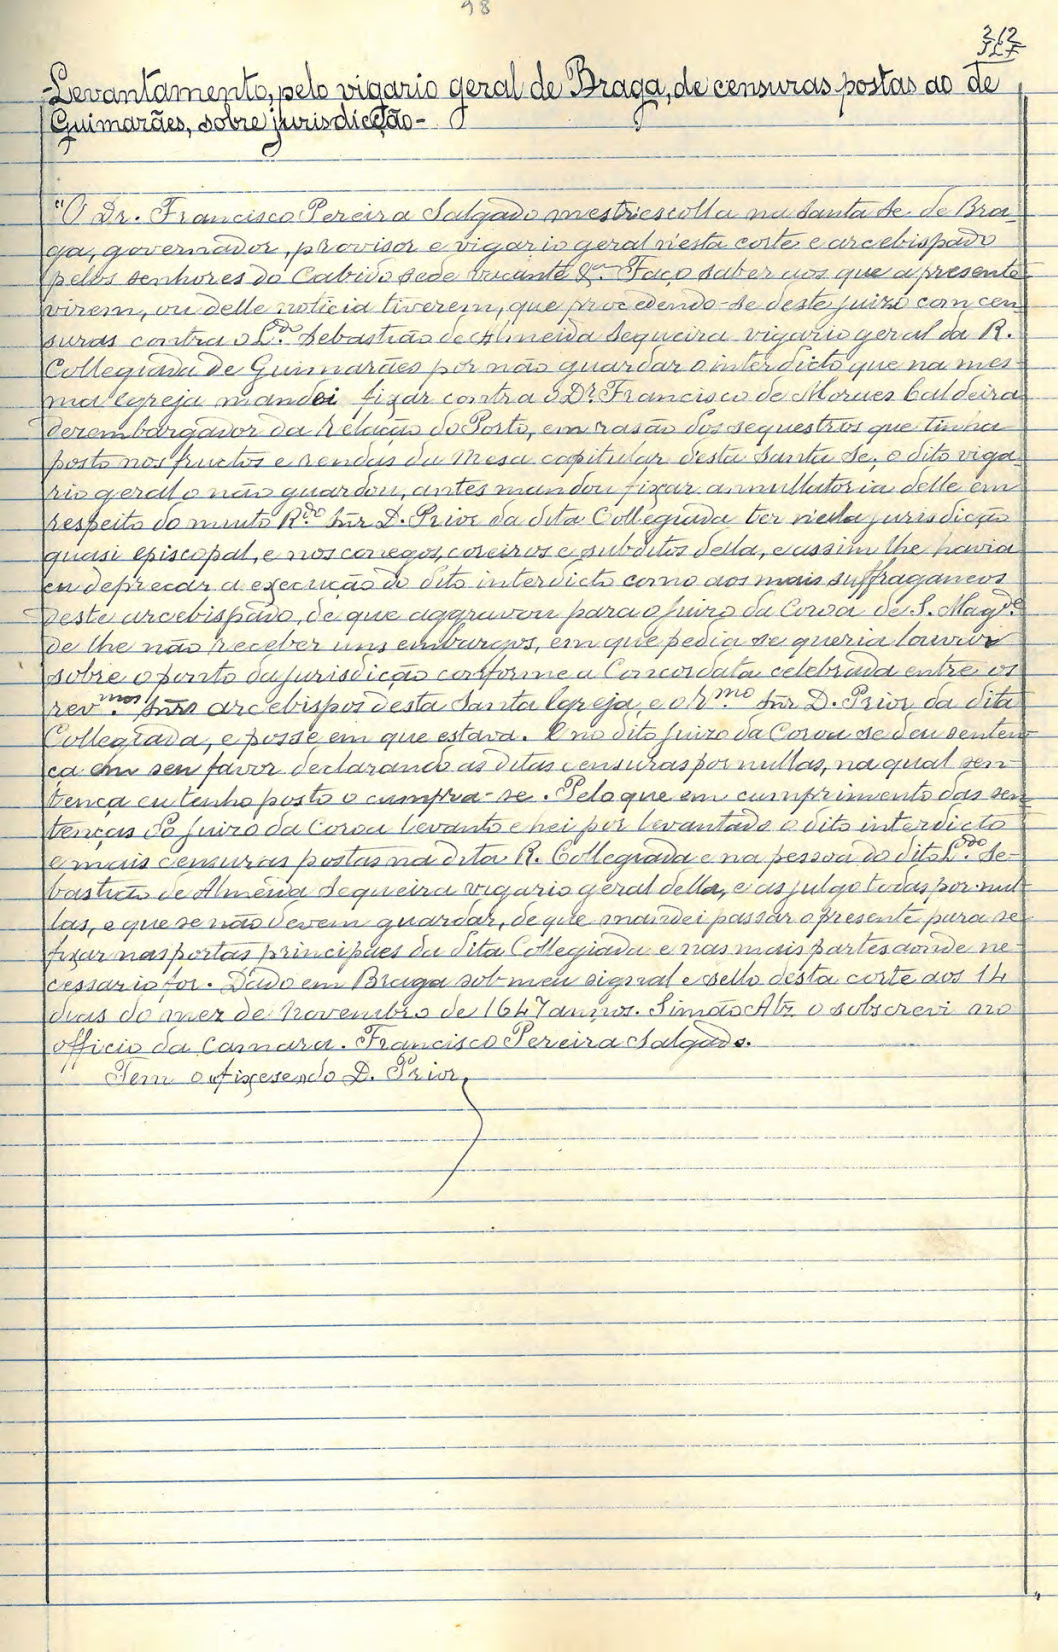 98
212
-Levantamento, pelo vigario geral de Braga, de censuras postas ao de
Guimarães, sobre jurisdicção-
"O Dr. Francisco Pereira Salgado mestriescolla na santa Se de Bra-
ga, governador, provisor e vigario geral n'esta corte e arcebispado
pelos senhores do Cabido sede vacante &ª. Faço saber aos que a presente
virem, ou delle noticia tiverem, que procedendo-se deste juizo com cen-
suras contra o L.do Sebastião de Almeida Sequeira vigario geral da R.
Collegiada de Guimarães por não guardar o interdicto que na mes-
ma egreja mandei fixar contra o Dr. Francisco de Moraes Caldeira
dezembargador da Relação do Porto, em rasão dos sequestros que tinha
posto nos fructos e rendas da Mesa capitular desta Santa Se, o dito viga-
rio geral o não guardou, antes mandou fixar annullatoria delle em
respeito do muito R.do Snr D. Prior da dita Collegiada ter n'ella jurisdicção
quasi episcopal, e nos conegos, coreiros e subditos della, e assim lhe havia
eu deprecar a execução do dito interdicto como aos mais suffraganeos
deste arcebispado, de que aggravou para o juizo da Coroa de S. Mag.de
de lhe não receber uns embargos, em que pedia se queria louvar
sobre o ponto da jurisdicção conforme a Concordata celebrada entre os
rev.mos Snrs arcebispos desta Santa Egreja, e o R.mo Snr D. Prior da dita
Collegiada, e posse em que estava. E no dito juizo da Coroa se deu senten-
ça em seu favor declarando as ditas censuras por nullas, na qual sen-
tença eu tenho posto o cumpra-se. Pelo que em cumprimento das sen-
tenças do juizo da Coroa levanto e hei por levantado o dito interdicto
e mais censuras postas na dita R. Collegiada e na pessoa do dito L.do Se-
bastião de Almeida Sequeira vigario geral della, e as julgo todas por nul-
las, e que se não devem guardar, de que mandei passar o presente para se
fixar nas portas principaes da dita Collegiada e nas mais partes aonde ne-
cessario for. Dado em Braga sob meu signal e sello desta corte aos 14
dias do mez de Novembro de 1647 annos. Simão Alz o subscrevi no
officio da Camara. Francisco Pereira Salgado.
Tem o fixese do D. Prior.